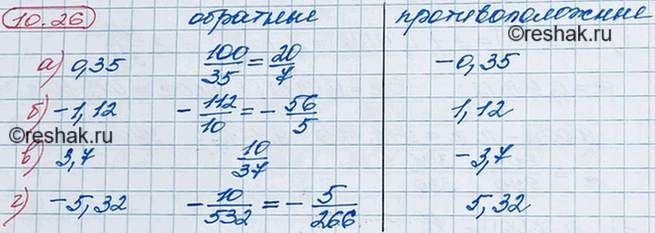 10.26 обратные противоположные
а) 0,35 100/35 = 20/7 -0,35
б) -1,12 -112/10 = -56/5 1,12
©reshak.ru
в) 3,7 10/37 -3,7
©reshak.ru
г) -5,32 -10/532 = -5/266 5,32